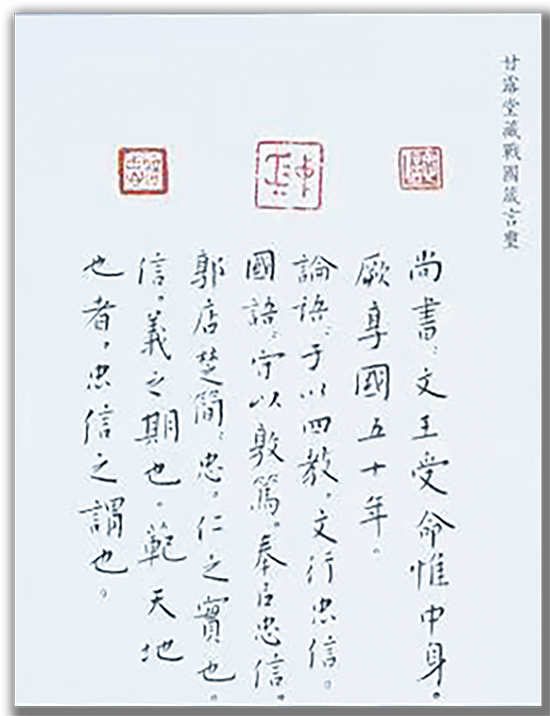 甘露堂藏戰國箴言璽
尚書:文王受命惟中身。
厥享國五十年。
論語:子以四教。文行忠信。
國語:守以敦篤。奉以忠信。
郭店楚簡:忠。仁之實也。
信。義之期也。範天地
也者,忠信之謂也。